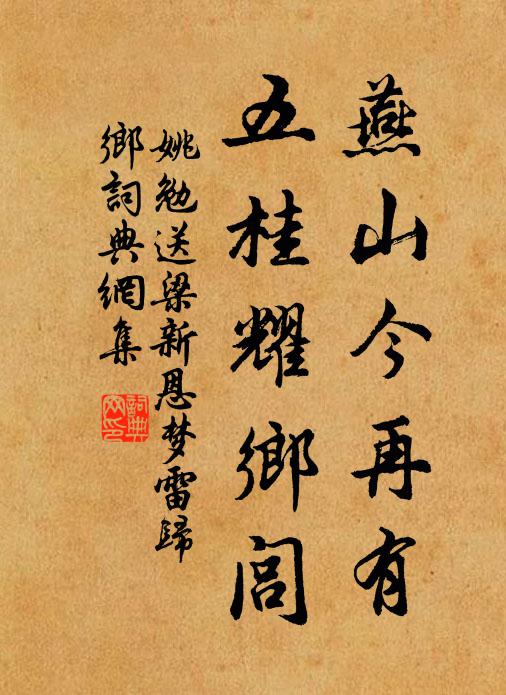 燕山今再有
五桂耀鄉閭
姚勉送梁新恩梦雷歸
鄉詞典網集
詞典网印